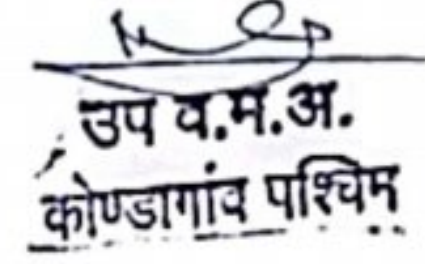 उप व.म.अ.
कोण्डागांव पश्चिम